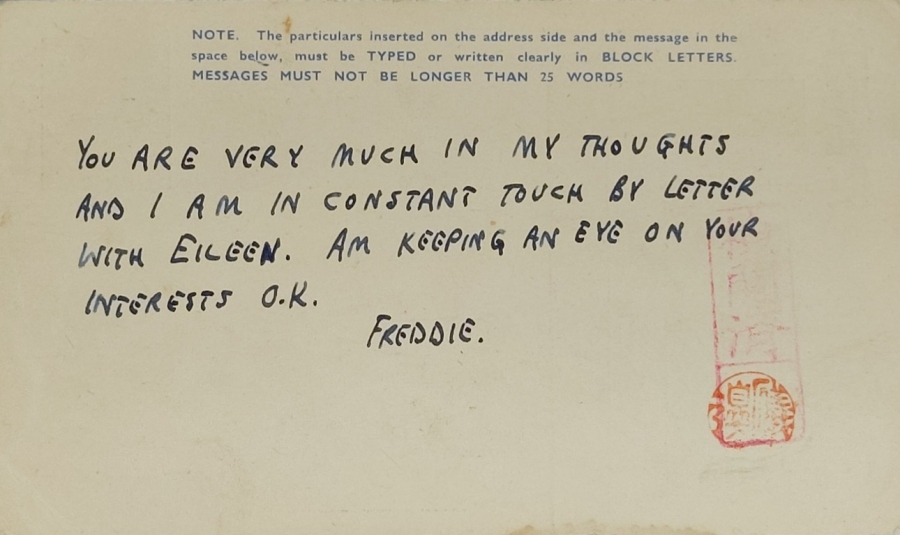 NOTE. The particulars inserted on the address side and the message in the
space below, must be TYPED or written clearly in BLOCK LETTERS.
MESSAGES MUST NOT BE LONGER THAN 25 WORDS
YOU ARE VERY MUCH IN MY THOUGHTS
AND I AM IN CONSTANT TOUCH BY LETTER
WITH EILEEN. AM KEEPING AN EYE ON YOUR
INTERESTS O.K.
FREDDIE.